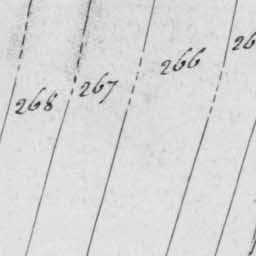 268 267 266 26